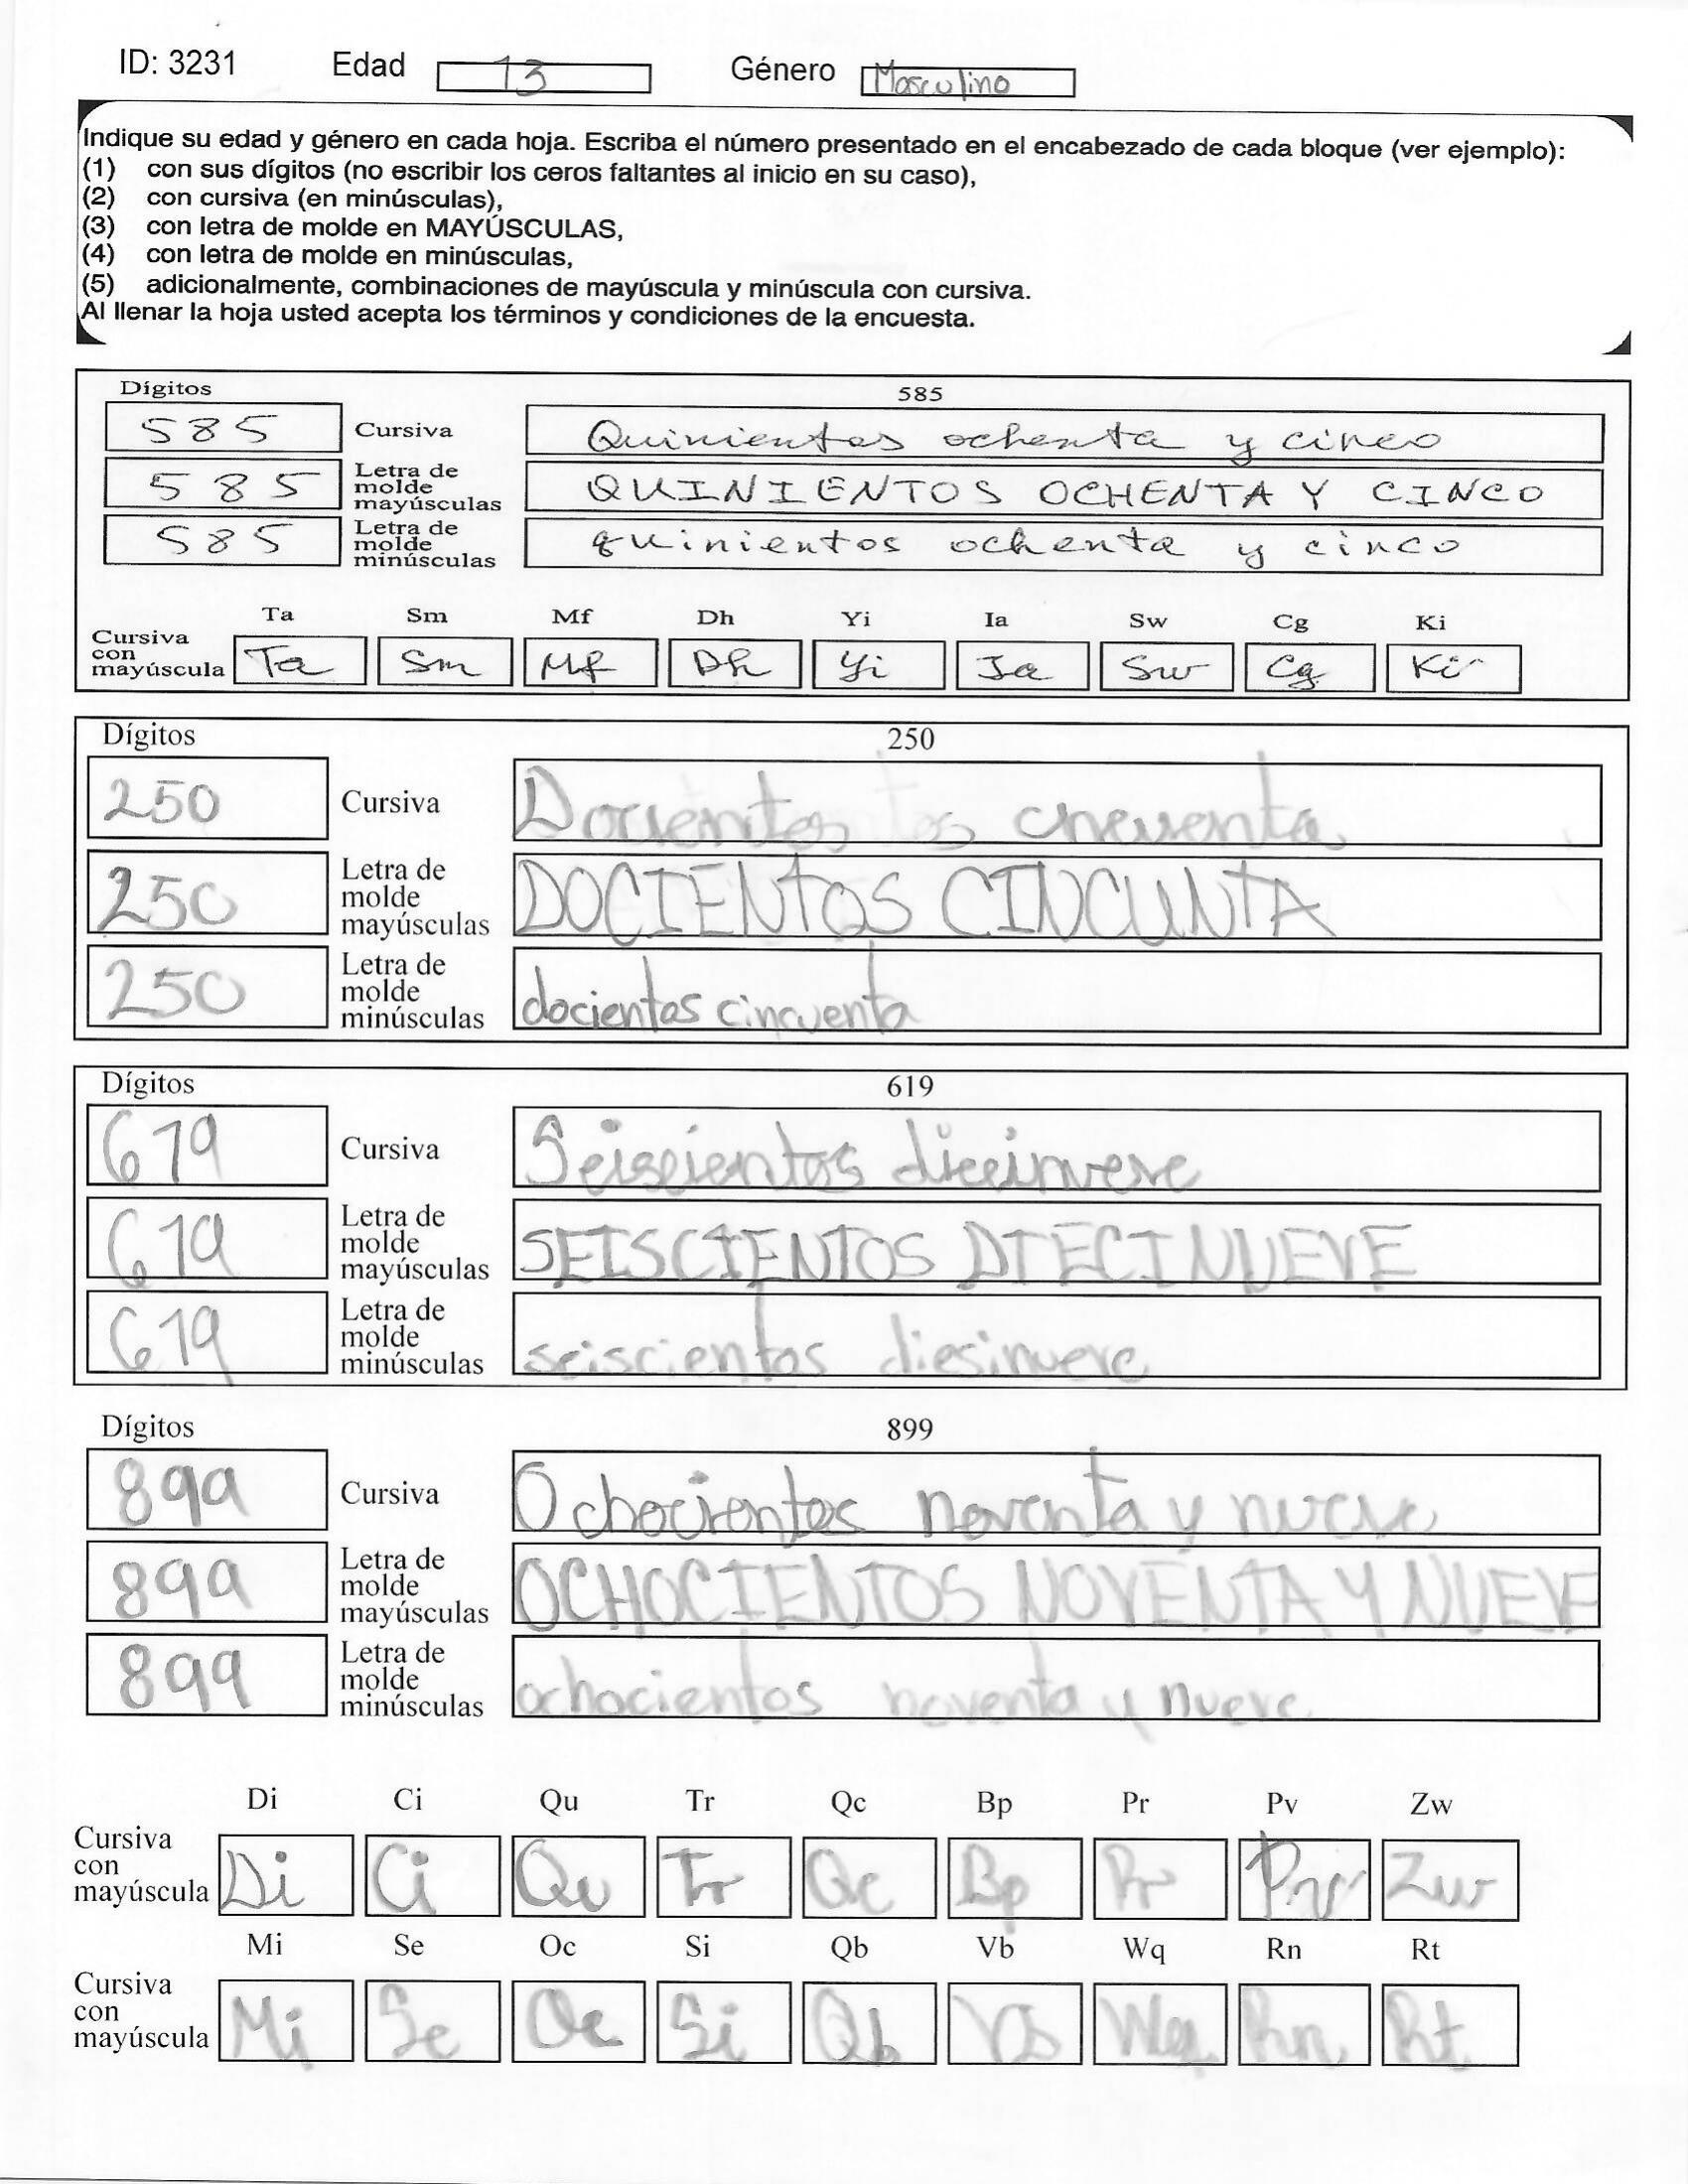 ID: 3231 Edad 13 Género Masculino
Indique su edad y género en cada hoja. Escriba el número presentado en el encabezado de cada bloque (ver ejemplo):
(1) con sus dígitos (no escribir los ceros faltantes al inicio en su caso),
(2) con cursiva (en minúsculas),
(3) con letra de molde en MAYÚSCULAS,
(4) con letra de molde en minúsculas,
(5) adicionalmente, combinaciones de mayúscula y minúscula con cursiva.
Al llenar la hoja usted acepta los términos y condiciones de la encuesta.
Dígitos 585
585 Cursiva Quinientos ochenta y cinco
585 Letra de molde mayúsculas QUINIENTOS OCHENTA Y CINCO
585 Letra de molde minúsculas quinientos ochenta y cinco
Ta Sm Mf Dh Yi Ia Sw Cg Ki
Cursiva con mayúscula Ta Sm Mf Dh Yi Ia Sw Cg Ki
Dígitos 250
250 Cursiva Docientos
250 Letra de molde mayúsculas DOCIENtOS CINCUNTA
250 Letra de molde minúsculas docientos cincuenta
Dígitos 619
619 Cursiva Seiscientos
619 Letra de molde mayúsculas SEISCIENTOS DIECINUEVE
619 Letra de molde minúsculas seiscientos diesinueve
Dígitos 899
899 Cursiva Ochocientos noventa y nueve
899 Letra de molde mayúsculas OCHOCIENTOS NOVENTA Y NUEVE
899 Letra de molde minúsculas ochocientos noventa y nueve
Di Ci Qu Tr Qc Bp Pr Pv Zw
Cursiva con mayúscula Di Ci Qu Tr Qc Bp Pr Pv Zw
Mi Se Oc Si Qb Vb Wq Rn Rt
Cursiva con mayúscula Mi Se Oc Si Qb Vb Wq Rn Rt